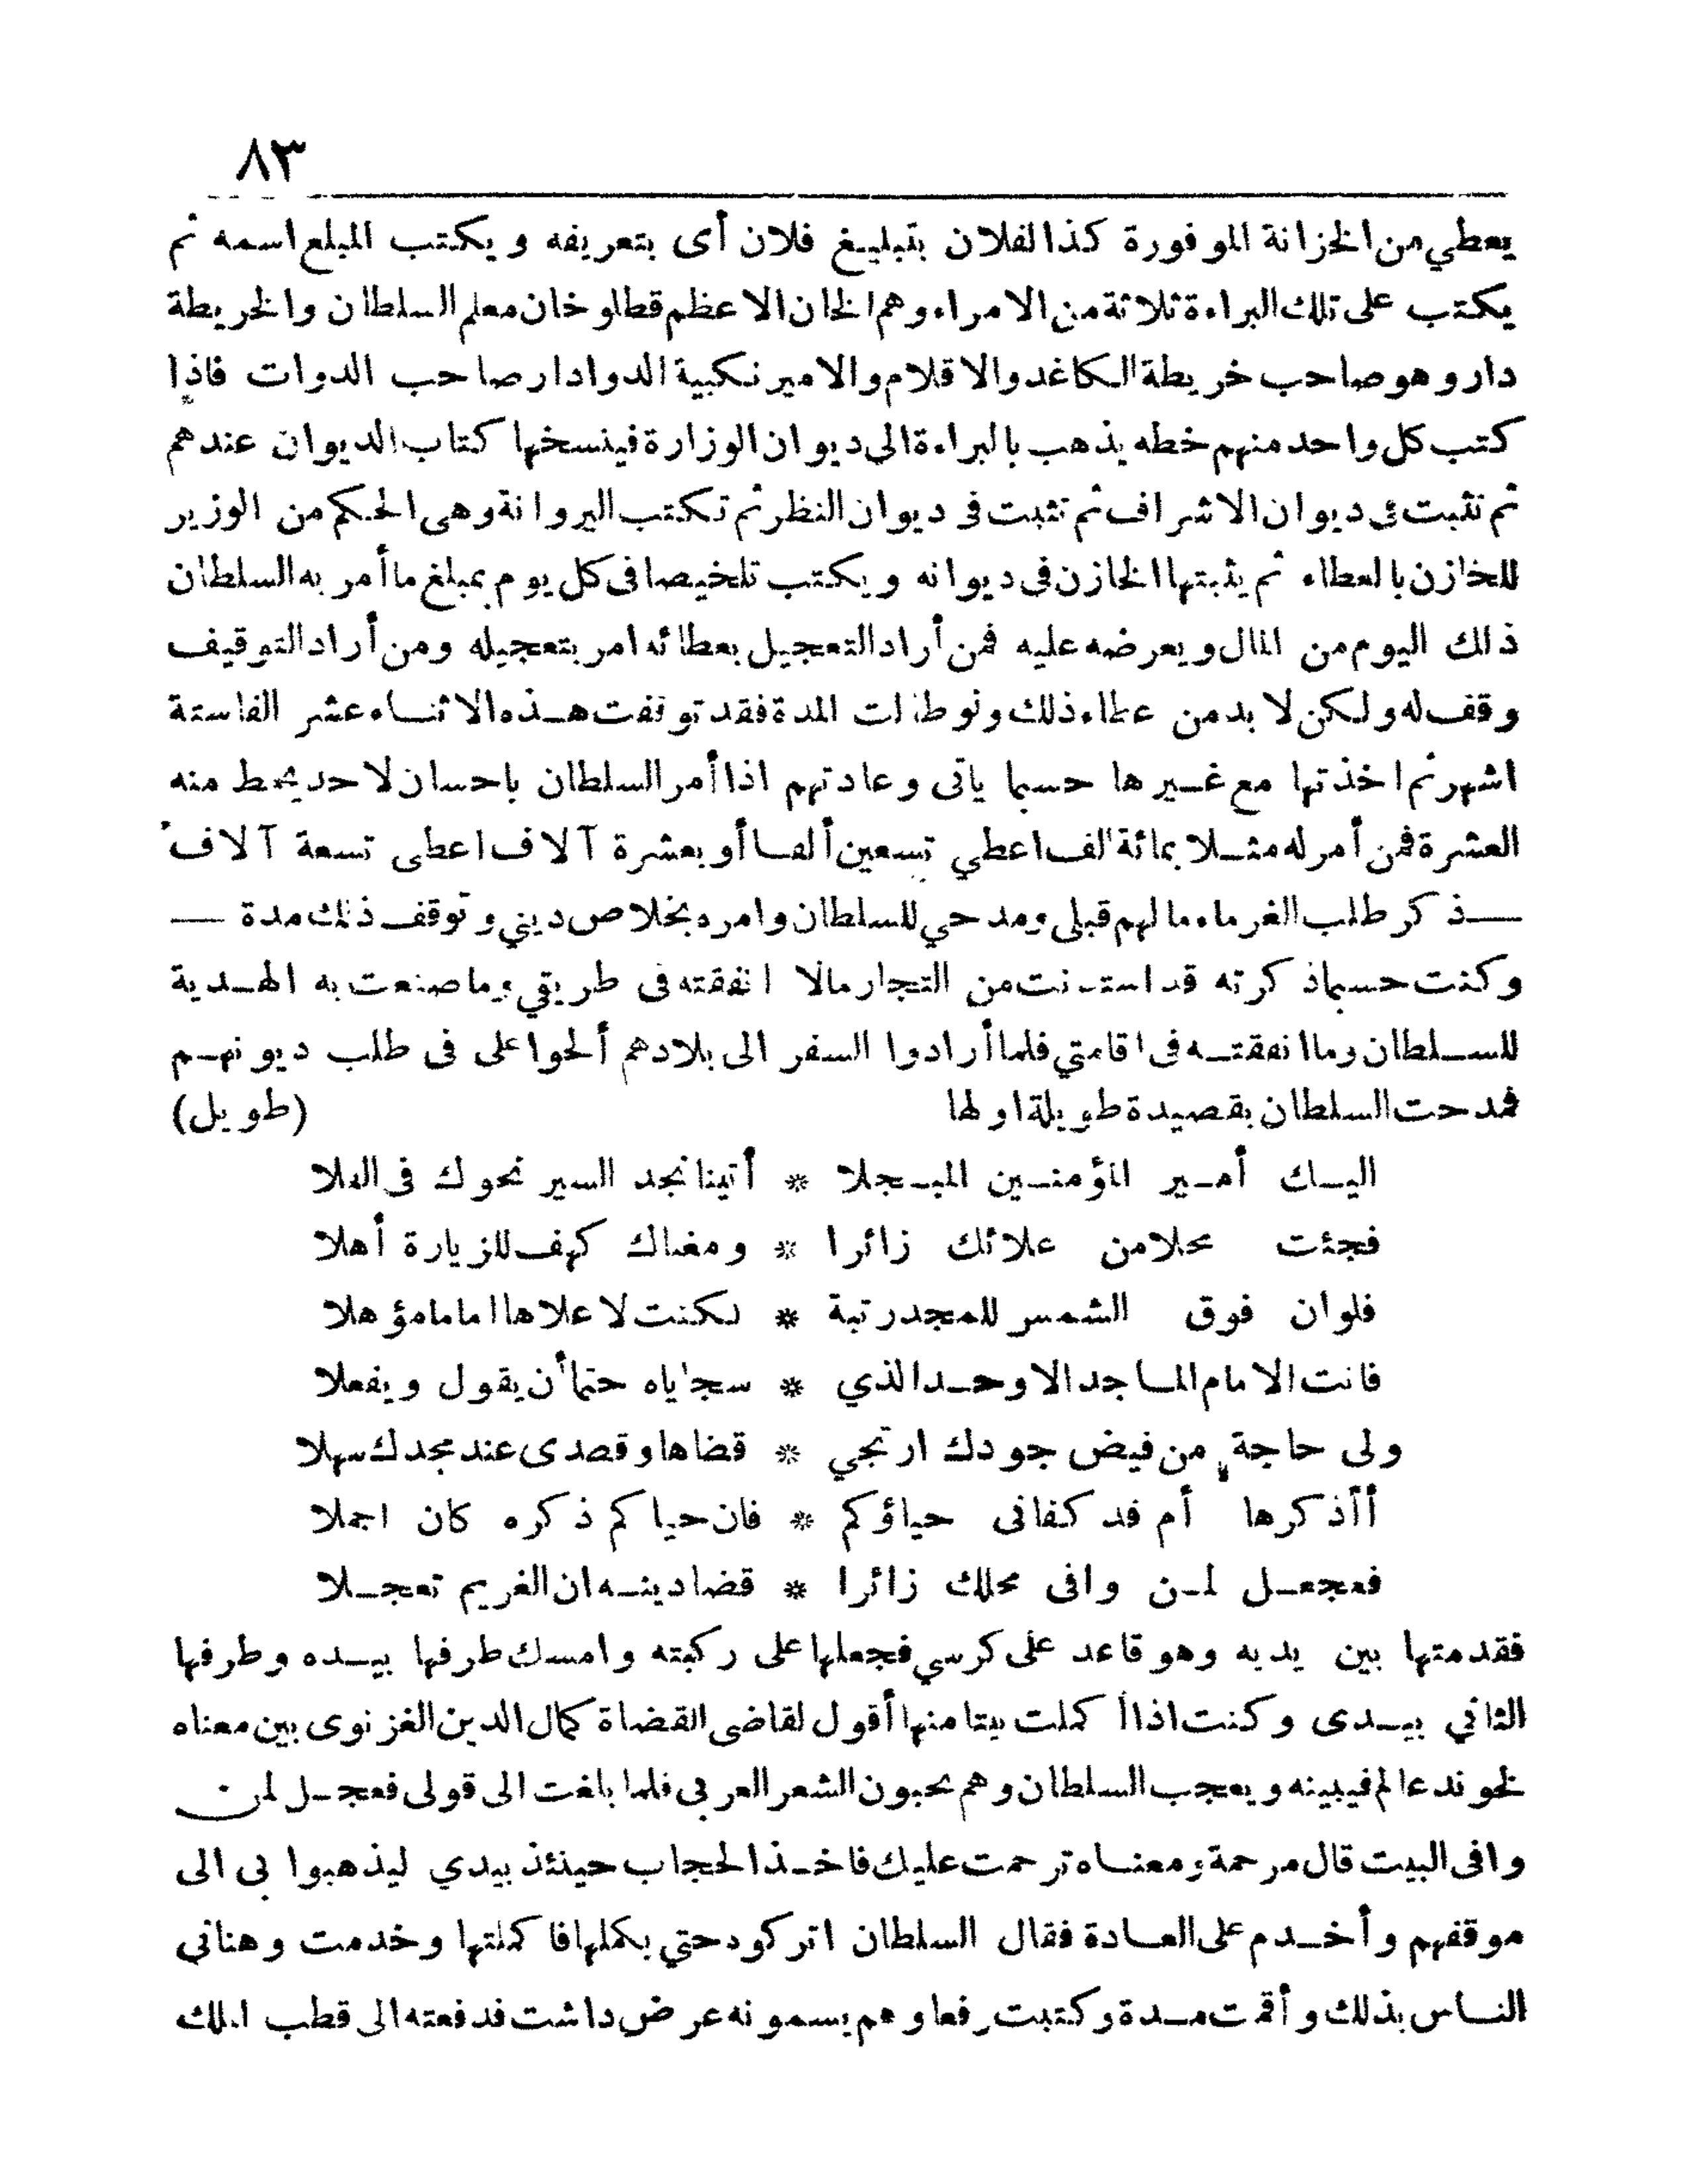 ٨٣
يعطي من الخزانة الموفورة كذا لفلان بتبليغ فلان أى بتعريفه ويكتب المبلغ اسمه ثم
يكتب على تلك البراءة ثلاثة من الامراء وهم الخان الاعظم قطلو خان معلم السلطان والخريطة
دار وهو صاحب خريطة الكاغد والاقلام والامير نكبية الدوادار صاحب الدوات فاذا
كتب كل واحد منهم خطه يذهب بالبراءة الى ديوان الوزارة فينسخها كتاب الديوان عندهم
ثم تثبت فى ديوان الاشراف ثم تثبت فى ديوان النظر ثم تكتب البروانة وهى الحكم من الوزير
للخازن بالعطاء ثم يثبتها الخازن فى ديوانه ويكتب تلخيصا فى كل يوم بمبلغ ما أمر به السلطان
ذلك اليوم من المال ويعرضه عليه فمن أراد التعجيل بعطائه امر بتعجيله ومن أراد التوقيف
وقف له ولكن لا بد من عطاء ذلك ولو طالت المدة فقد توقفت هذه الاثناء عشر الفا ستة
اشهر ثم اخذتها مع غيرها حسبما ياتى وعادتهم اذا أمر السلطان باحسان لاحد يحط منه
العشرة فمن أمر له مثلا بمائة الف اعطي تسعين ألفا أو بعشرة آلاف اعطى تسعة آلاف
— ذكر طلب الغرماء ما لهم قبلى ومدحي للسلطان وامره بخلاص ديني وتوقف ذلك مدة —
وكنت حسبما ذكرته قد استدنت من التجار مالا انفقته فى طريقي وما صنعت به الهدية
للسلطان وما انفقته فى اقامتي فلما أرادوا السفر الى بلادهم ألحوا على فى طلب ديونهم
فمدحت السلطان بقصيدة طويلة اولها (طويل)
اليك أمير المؤمنين المبجلا * أتينا نجد السير نحوك فى الفلا
فجئت محلا من علائك زائرا * ومغناك كهف للزيارة أهلا
فلو ان فوق الشمس للمجد رتبة * لكنت لاعلاها اماما مؤهلا
فانت الامام الماجد الاوحد الذي * سجاياه حتما أن يقول ويفعلا
ولى حاجة من فيض جودك ارتجي * قضاها وقصدى عند مجدك سهلا
أأذكرها أم قد كفانى حياؤكم * فان حياكم ذكره كان اجملا
فعجعل لمن وافى محلك زائرا * قضا دينه ان الغريم تعجلا
فقدمتها بين يديه وهو قاعد على كرسي فجعلها على ركبته وامسك طرفها بيده وطرفها
الثاني بيدى وكنت اذا أكملت بيتا منها أقول لقاضى القضاة كمال الدين الغزنوى بين معناه
لخوند عالم فيبينه ويعجب السلطان وهم يحبون الشعر العربى فلما بلغت الى قولى فعجل لمن
وافى البيت قال مرحمة ومعناه ترحمت عليك فاخذ الحجاب حينئذ بيدي ليذهبوا بى الى
موقفهم وأخدم على العادة فقال السلطان اتركوه حتي يكملها فاكملتها وخدمت وهنانى
الناس بذلك وأقمت مدة وكتبت رفعا وهم يسمونه عرض داشت فدفعته الى قطب الملك